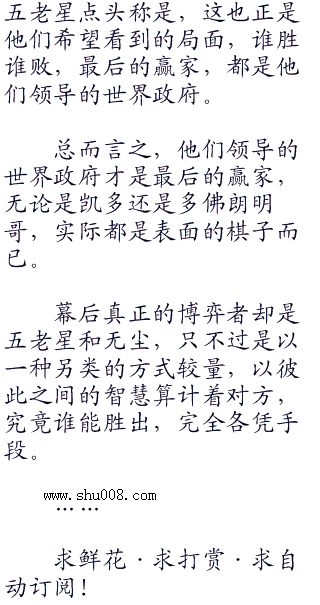 五老星点头称是，这也正是
他们希望看到的局面，谁胜
谁败，最后的赢家，都是他
们领导的世界政府。
总而言之，他们领导的
世界政府才是最后的赢家，
无论是凯多还是多佛朗明
哥，实际都是表面的棋子而
已。
幕后真正的博弈者却是
五老星和无尘，只不过是以
一种另类的方式较量，以彼
此之间的智慧算计着对方，
究竟谁能胜出，完全各凭手
段。
www.shu008.com
……
求鲜花·求打赏·求自
动订阅！